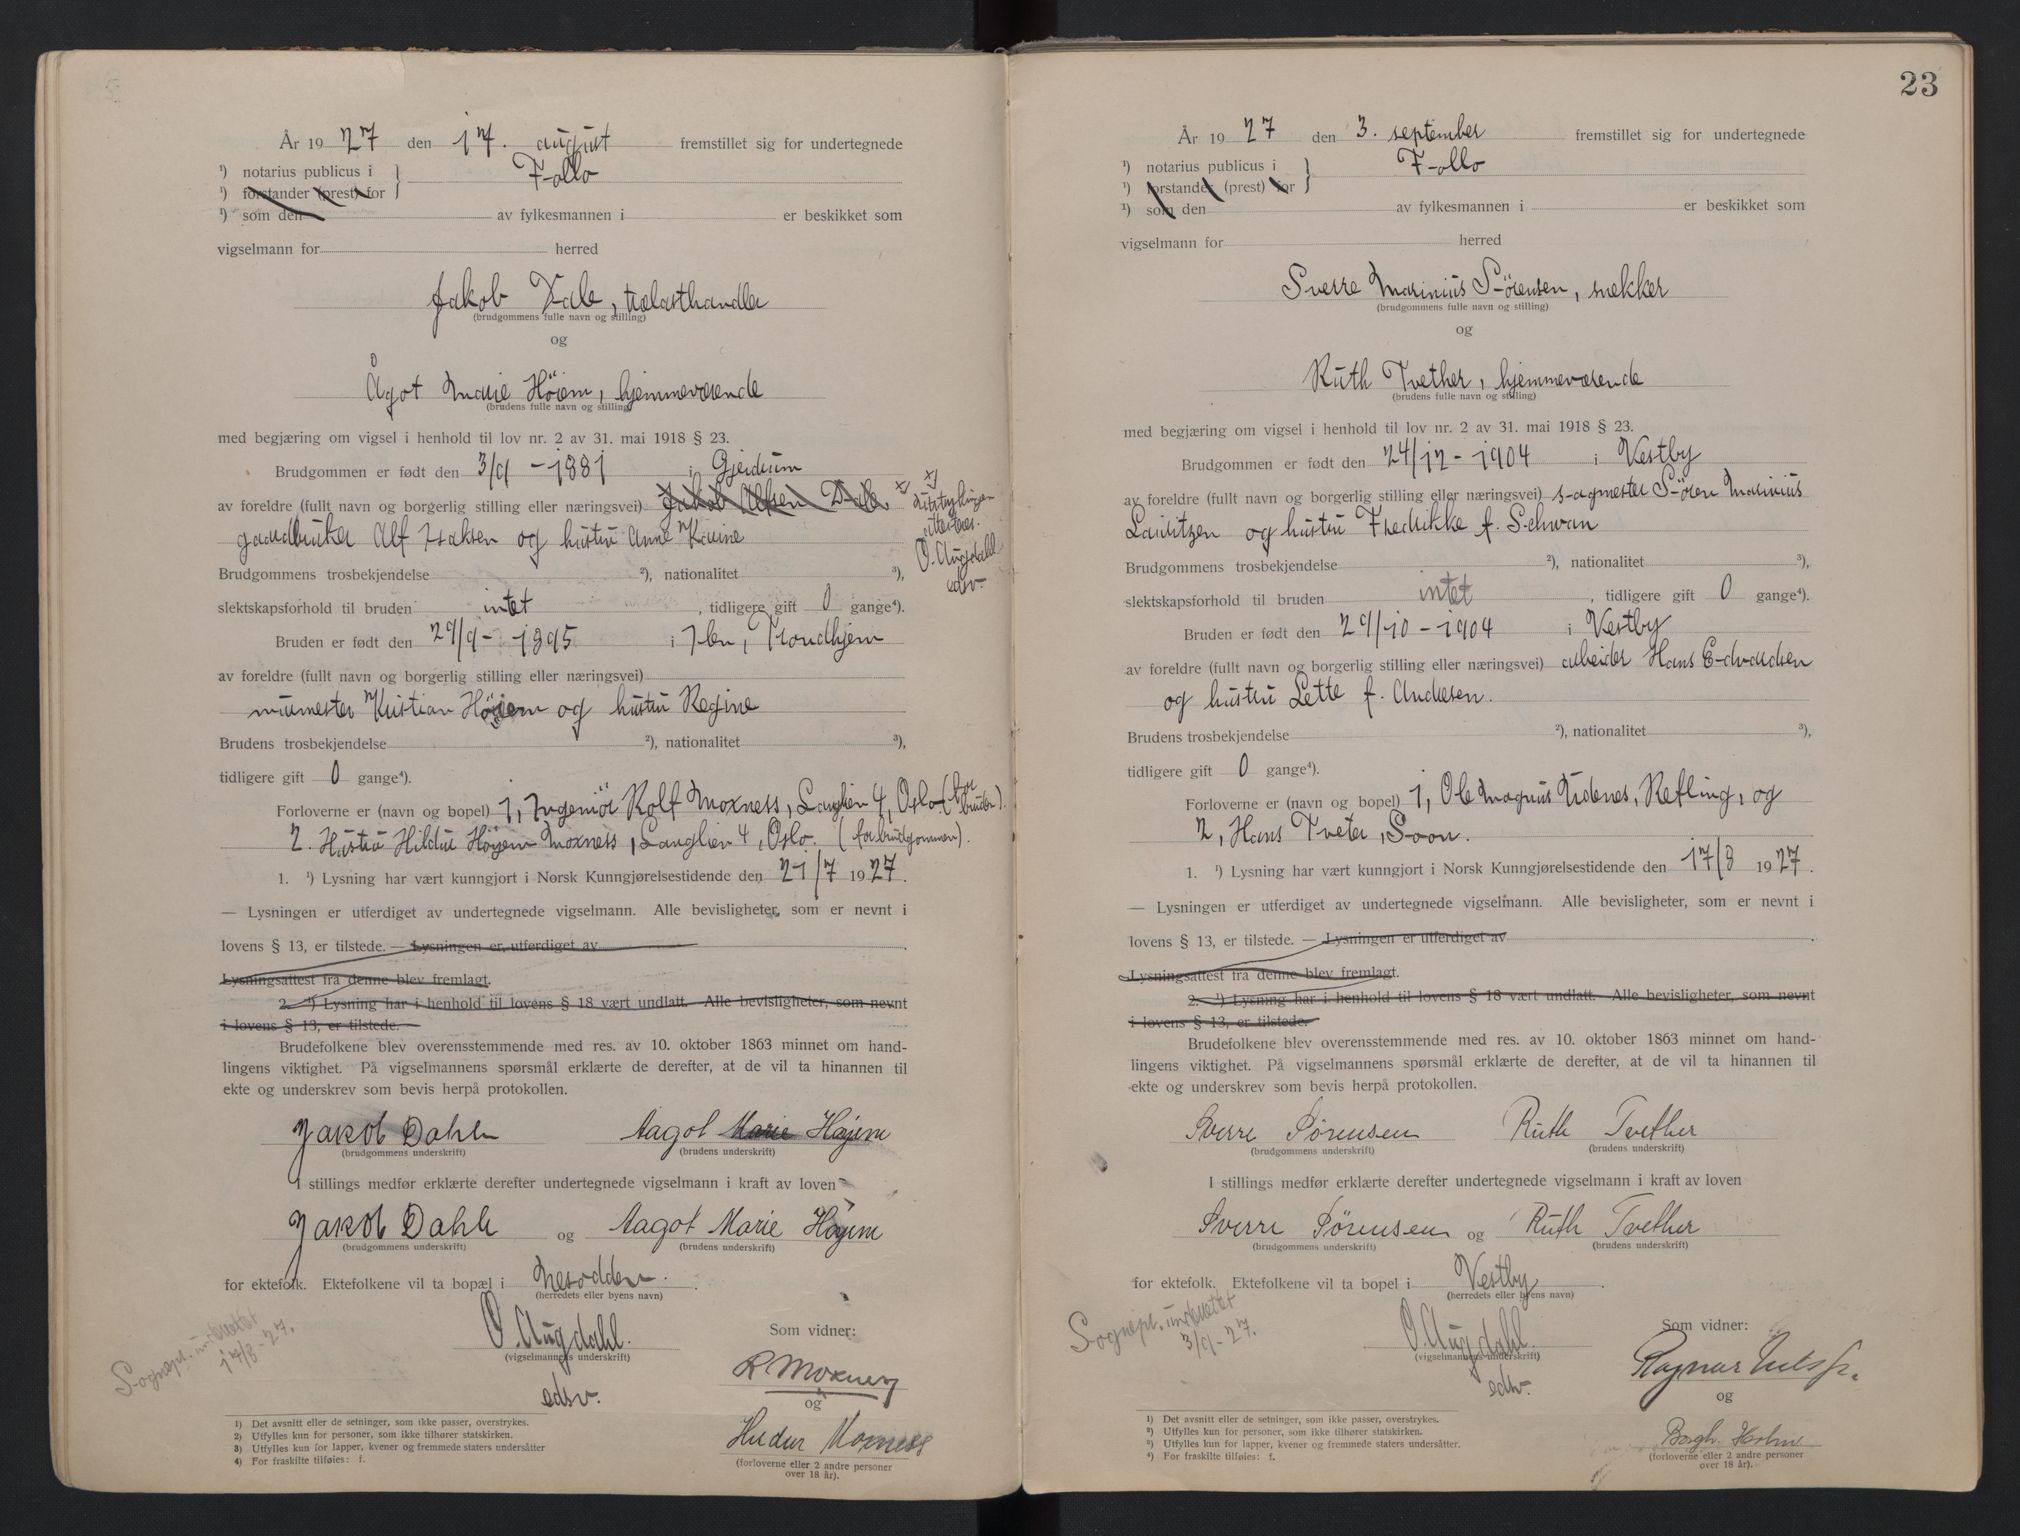 År 1927 den 17. august fremstillet sig for undertegnede
¹) notarius publicus i } Follo
¹) forstander (prest) for
¹) som den av fylkesmannen i er beskikket som
vigselmann for herred
Jakob Dale, trælasthandler
(brudgommens fulle navn og stilling)
og
Ågot Marie Höiem, hjemmeværende
(brudens fulle navn og stilling)
med begjæring om vigsel i henhold til lov nr. 2 av 31. mai 1918 § 23.
Brudgommen er født den 3/9 - 1881 i Gjerdrum
av foreldre (fullt navn og borgerlig stilling eller næringsvei) Jakob Alfsen Dale x/
x/ utstrykningen
attesteres.
O. Augdahl
edsv.
gaardbruker Alf Isaksen og hustru Anne Karine
Brudgommens trosbekjendelse ²), nationalitet ³),
slektskapsforhold til bruden intet, tidligere gift 0 gange⁴).
Bruden er født den 29/9 - 1895 i Ilen, Trondhjem
av foreldre (fullt navn og borgerlig stilling eller næringsvei)
murmester Kristian Höiem og hustru Regine
Brudens trosbekjendelse ²), nationalitet ³),
tidligere gift 0 gange⁴).
Forloverne er (navn og bopel) 1, Ingeniör Rolf Moxness, Langlien 4, Oslo (for bruden).
2. Hustru Hildur Höyem Moxness, Langlien 4, Oslo. (for brudgommen).
1. ¹) Lysning har vært kunngjort i Norsk Kunngjørelsestidende den 21/7 1927.
— Lysningen er utferdiget av undertegnede vigselmann. Alle bevisligheter, som er nevnt i
lovens § 13, er tilstede. — Lysningen er utferdiget av
Lysningsattest fra denne blev fremlagt.
2. ¹) Lysning har i henhold til lovens § 18 vært undlatt. Alle bevisligheter, som nevnt
i lovens § 13, er tilstede.
Brudefolkene blev overensstemmende med res. av 10. oktober 1863 minnet om hand-
lingens viktighet. På vigselmannens spørsmål erklærte de derefter, at de vil ta hinannen til
ekte og underskrev som bevis herpå protokollen.
Jakob Dahle Aagot Marie Höyem
(brudgommens underskrift) (brudens underskrift)
I stillings medfør erklærte derefter undertegnede vigselmann i kraft av loven
Jakob Dahle og Aagot Marie Höyem
(brudgommens underskrift) (brudens underskrift)
for ektefolk. Ektefolkene vil ta bopæl i Nesodden.
(herredets eller byens navn)
Sognepr. underrettet
17/8-27.
O. Augdahl.
(vigselmannens underskrift)
edsv.
Som vidner:
R Moxness
og
Hildur Moxness
(forloverne eller 2 andre personer
over 18 år).
1) Det avsnitt eller de setninger, som ikke passer, overstrykes.
2) Utfylles kun for personer, som ikke tilhører statskirken.
3) Utfylles kun for lapper, kvener og fremmede staters undersåtter
4) For fraskilte tilføies: f.
23
År 1927 den 3. september fremstillet sig for undertegnede
¹) notarius publicus i } Follo
¹) forstander (prest) for
¹) som den av fylkesmannen i er beskikket som
vigselmann for herred
Sverre Marinius Sörensen, snekker
(brudgommens fulle navn og stilling)
og
Ruth Tvether, hjemmeværende
(brudens fulle navn og stilling)
med begjæring om vigsel i henhold til lov nr. 2 av 31. mai 1918 § 23.
Brudgommen er født den 24/12 - 1904 i Vestby
av foreldre (fullt navn og borgerlig stilling eller næringsvei) sagmester Sören Marinius
Lauritzen og hustru Fredrikke f. Schwan
Brudgommens trosbekjendelse ²), nationalitet ³),
slektskapsforhold til bruden intet, tidligere gift 0 gange⁴).
Bruden er født den 29/10 - 1904 i Vestby
av foreldre (fullt navn og borgerlig stilling eller næringsvei) arbeider Hans Edvardsen
og hustru Lette f. Andresen.
Brudens trosbekjendelse ²), nationalitet ³),
tidligere gift 0 gange⁴).
Forloverne er (navn og bopel) 1, Ole Magnus Udenes, Refling, og
2, Hans Tveter, Soon.
1. ¹) Lysning har vært kunngjort i Norsk Kunngjørelsestidende den 17/8 1927.
— Lysningen er utferdiget av undertegnede vigselmann. Alle bevisligheter, som er nevnt i
lovens § 13, er tilstede. — Lysningen er utferdiget av
Lysningsattest fra denne blev fremlagt.
2. ¹) Lysning har i henhold til lovens § 18 vært undlatt. Alle bevisligheter, som nevnt
i lovens § 13, er tilstede.
Brudefolkene blev overensstemmende med res. av 10. oktober 1863 minnet om hand-
lingens viktighet. På vigselmannens spørsmål erklærte de derefter, at de vil ta hinannen til
ekte og underskrev som bevis herpå protokollen.
Sverre Sørensen Ruth Tvether
(brudgommens underskrift) (brudens underskrift)
I stillings medfør erklærte derefter undertegnede vigselmann i kraft av loven
Sverre Sørensen og Ruth Tvether
(brudgommens underskrift) (brudens underskrift)
for ektefolk. Ektefolkene vil ta bopel i Vestby.
(herredets eller byens navn)
Sognepr. underrettet
3/9-27.
O. Augdahl.
(vigselmannens underskrift)
edsv.
Som vidner:
Ragnar
og
Holme
(forloverne eller 2 andre personer
over 18 år).
1) Det avsnitt eller de setninger, som ikke passer, overstrykes.
2) Utfylles kun for personer, som ikke tilhører statskirken.
3) Utfylles kun for lapper, kvener og fremmede staters undersåtter.
4) For fraskilte tilføies: f.